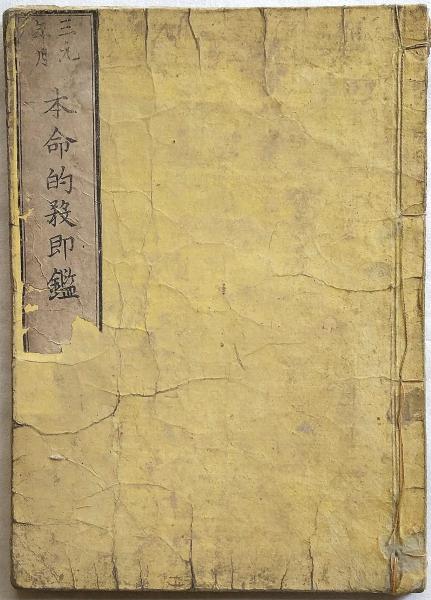 三元
年月
本命的殺即鑑